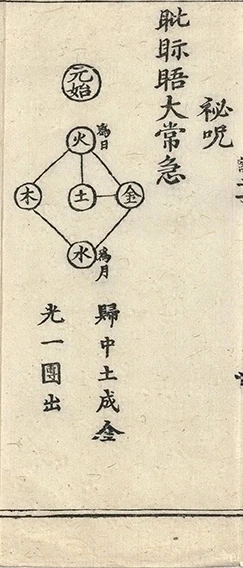 祕呪
眎晤大常急
元始
火
爲日
木
土
金
水
爲月
歸中土成金
光一團出